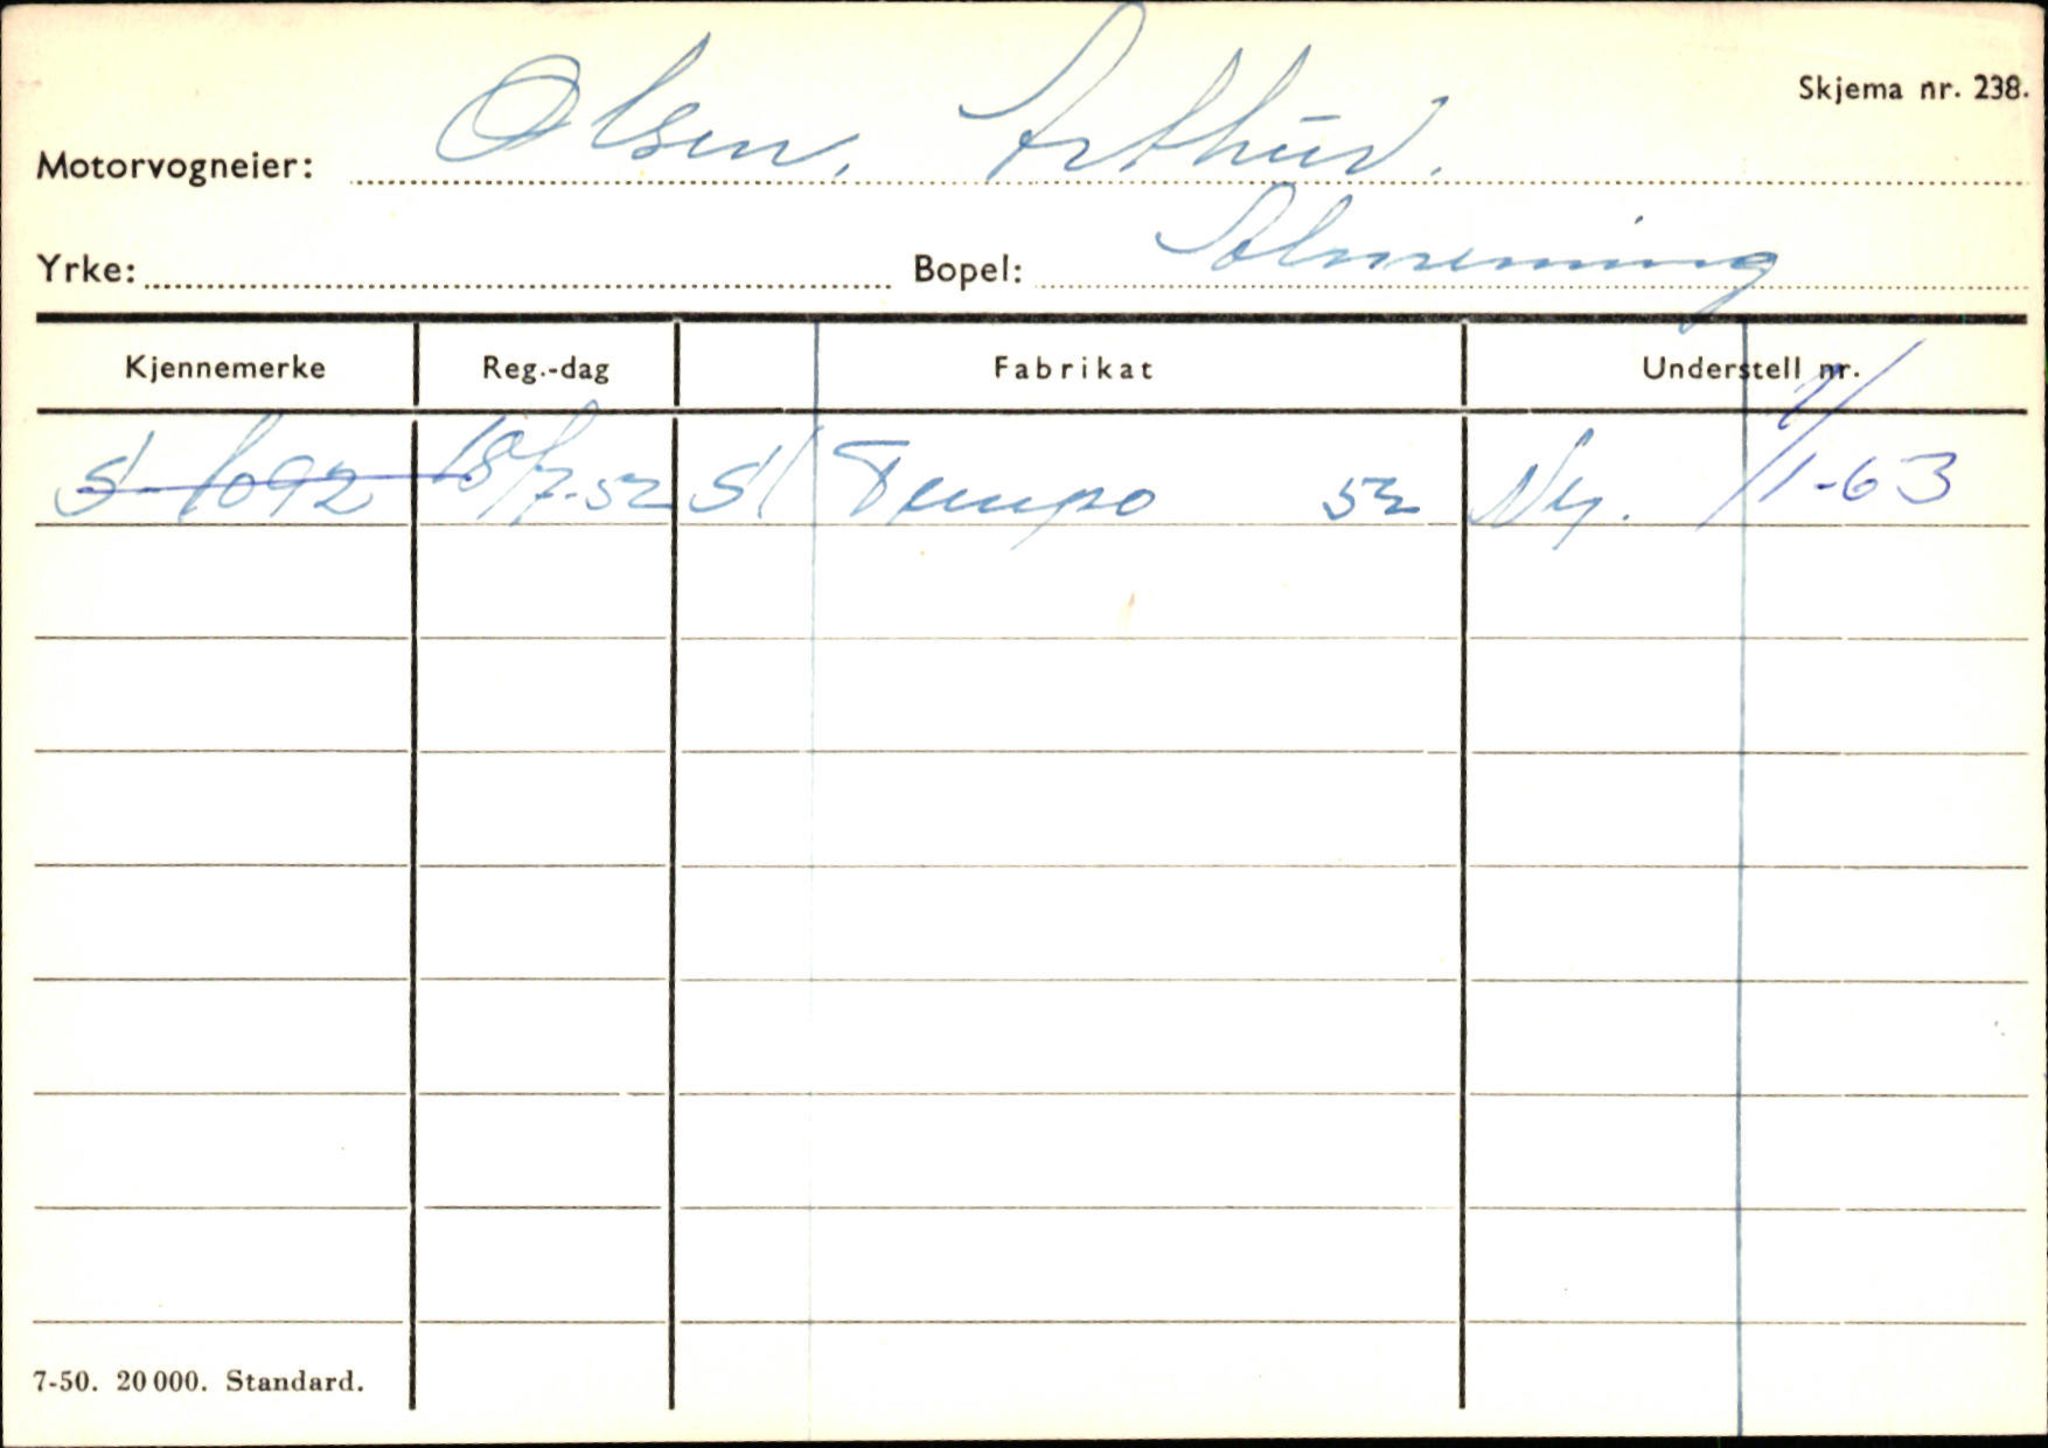 Skjema nr. 238.
Motorvogneier: Olsen, Arthur.
Yrke: Bopel: Almenning
Kjennemerke Reg.-dag Fabrikat Understell nr.
S-1092 18/7-52 Tempo 52 Ny. 1-63
7-50. 20 000. Standard.